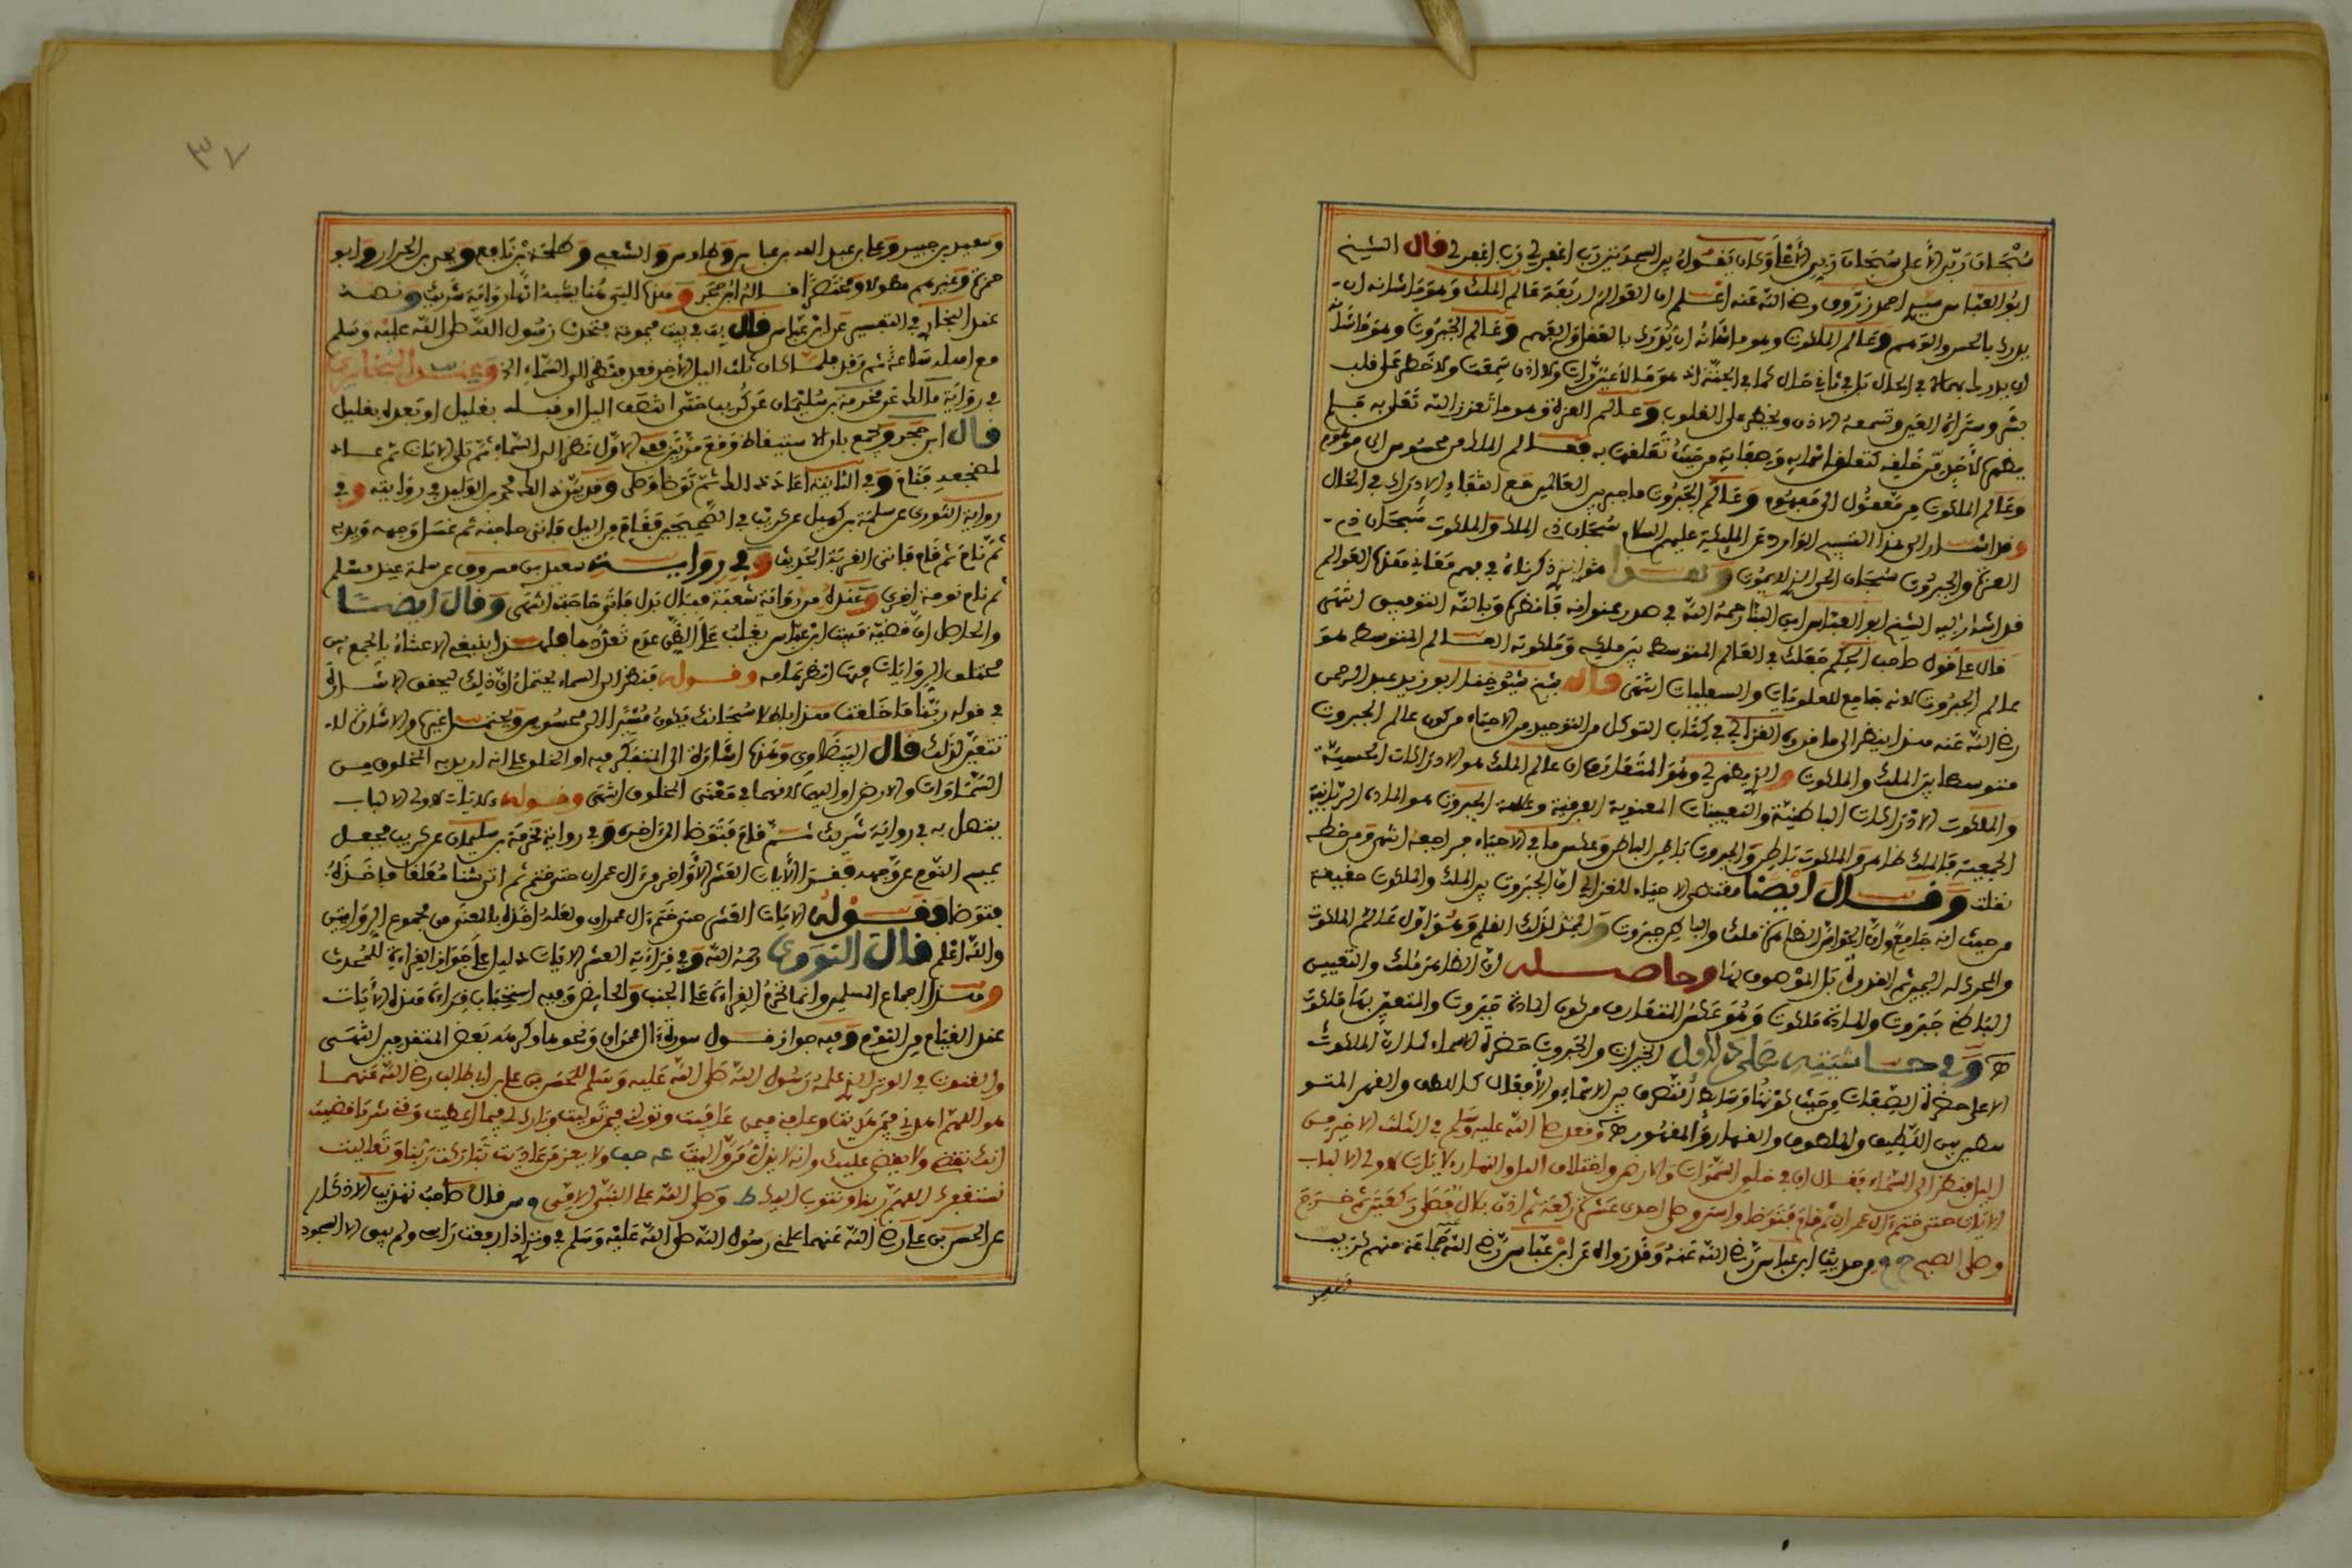 سُبْحَانَ رَبِّيَ الأَعلى سُبْحَانَ رَبِيَ الأَعْلَا وَكان يَقُولُ بين السجدتين رَبِّ اغفر لي رَبِّ اغفر لي قال الشيخ
ابُو العَبّاس سيدي احمد زرّوق رضي اللّه عَنه اعْلم ان العَوالم اربَعَة عَالم الملك وَهوَ مَا شانه ان
يدرك بالحس والوَهم وعَالم الملكوت وهو ما شانُهُ ان يُدرك بالعَقل وَالفهم وَعَالم الجَبرُوت وهوَ مَا شانه
ان يدرك في الحال بَل في ثاني حَال كما في الجنة اذ هوَ مَا لا عَين رَأت ولا اذن سَمعَت ولا خطر عَلى قلب
بشر وسَتَراهُ العَين وتسمعهُ الاذن ويخطر على القلوب وَعالم العزة وهو ما تعزز اللّه تَعَلى به فلم
يظهره لأحَد من خَلقه كتعلق اسمايه وَصفاته من حَيث تَعَلقهَا به فعالم الملك من محسُوس الى موهوم
وعَالم الملكوت من مَعقُول الى مَفهوُم وعَالم الجَبرُوت ما جمع بين العَالمَين مَع انتفاء الادراك في الحَال
وقد اشار الى هذا التقسيم الوارد عَن المليكة عليهم السلام سُبحَان ذي الملك وَالملكوت سُبحَان ذي
العزة والجبروت سُبحَان الحي الذي لا يمُوت وَهذا هو الذي ذكرناهُ في بهم مَعَاني هذه العَوالم
قد اشار إليه الشيخ ابو العبّاس ابن البَنّا رَحمهُ اللّه في صدر عنوانه فَانظره وَباللّه التوفيق انتهَى
قال عَلى قَول صَاحب الحِكم جَعَلك في العَالم المتوسط بَين ملكه وَمَلكوته العالم المتوسط هوَ
عالم الجبرُوت لانه جَامع للعلويَات والسفليات انتهَى قال شيخ شيُوخنَا ابو زيد عبد الرحمن
رضي اللّه عَنه هذا ينظر الى ما قرره الغزالي في كتاب التوكل من التوحيد من الاحيَاء من كون عالم الجبروت
متوسطا بَين الملك والملكوت والذي يظهر لي وهُوَ المتعَارف ان عالم الملك هو الادرَاكات الحسية
وَالملكوت الادرَاكات الباطنيَّة والتعيينات المعنوية العرفية وعالم الجبروت هو المادة الربّانية
الجمعية فَالملك ظاهر وَالملكوت بَاطن وَالجبروت بَاطن الباطن وعكس ما في الاحيَاء فراجعه انتهى من خطه
نقلت وَقال ايْضًا مقتضى الاحيَاء للغزالي ان الجبَرُوت بين الملك والملكوت حقيقة
من حيث انه جَامعٌ وانّ الحَواس الظاهرة مُلك والباطن جَبرُوت وَالممثل لذَلك القلم وَهُوَ اوّل عَالم الملكوت
والمحرك له اليمين ثم القدرةُ بَل المَوصوف بهَا وحاصله انّ الظاهر مُلك والتعيين
البَاطن جَبَروت والمادة مَلكوت وَهُوَ عَكسُ المتعَارف من كون المادة جَبَروت والمتعين بهَا مَلكوت
وَفي حاشيَتِهِ عَلى الاول الجَبروت والجَبروت حَضرة الاسماء كما ان الملكوت
الاعلى حضرة الصِفات من حَيث كونهَا وَسَايط التصرف بين الاسماءِ والأفعَال كاللطف والقهر المتو
سطين بين اللطيف والملطوف والقهار وَالمقهُور وَفعل صلى اللّه عليه وَسَلم في الثلث الاخير من
اليل فنظر الى السَّماء فقال ان في خلق السَّموَات وَالارض واختلاف اليل والنهار لاياتٍ لاولى الالباب
الايَات حتى ختم ال عمران ثم قامَ فتوَضا واستن وصلى احدى عَشرَةَ ركعَة ثم اذن بلال فصَلى رَكعَتَين ثم خَرَجَ
وصلى الصبح خ م من حديث ابن عباس رَضي اللّه عَنهُ وَقد رَواه عَن ابن عبّاس رَضي اللّه عَنه جماعَة منهم كريب
وَسَعيد
٣٧
وَسَعيد بن جبير وَعلي بن عبد الله بن عباس وَطاوس وَالشعبي وَطلحة بْن نَافع وَيحيى بن الجزار وَابو
حمزة وَغيرهم مطولا ومختصَرًا قالهُ ابن حَجَر وَهذه التي هُنا يشبهُ انّها روَايَة شَريك وَنصهُ
عند البخاري في التفسير عَن ابن عَبّاس قال بت في بيت ميمونة فتحدث رَسُول اللّه صلى اللّه عليه وَسَلم
مع اهله سَاعَةً ثم رَقد فلمّا كان ثلث اليل الأخير قعد فنظر الى السَّماءِ الخ وَعند البُخَاري
في روَايَة مَالك عَن مَخرمَة بن سُليمَان عَن كُريب حَتى انتصَف اليل او قبله بقليل او بَعدهُ بقليل
قال ابن حَجَر وَيجمع بان الاستيقاظ وَقعَ مَرتَين فَفي الاوّل نَظرَ الى السَّماءِ ثم تلى الايَات ثم عاد
لمضجعه فَنَام وَفي الثانية اعَادَ ذلك ثم تَوَضا وَصَلى وَقد بَيّن ذلك محمد بن الوَليد في روَايته وَفي
روايَة الثوري عن سلمَة بن كهيل عن كريب في الصَحِيحَين فَقَامَ من اليل فاتى حاجته ثم غسَل وَجهه وَيديه
ثمّ نَامَ ثم قام فاتى القربَة الحَديث وَفي رِوايَةِ سعيد بن مسروق عن سلمة عند مسلم
ثم نام نومة اخرى وَعندَهُ من روَاية شُعبَة فبَال بَدل فاتى حَاجته انتهَى وَقال ايضًا
وَالحاصل انّ قصّة مَبيت ابن عباس يغلبُ عَلى الظنّ عَدم تَعدّدها فلهذا ينبغي الاعتناءُ بالجمع بين
مختلف الروَايَات فيها انظر تمَامه وقوله فنظر الى السماء يحتملُ انّ ذلك ليحقق الاشَارةَ
في قوله رَبّنا مَا خَلقتَ هذا باطلا سُبحَانك فيكون مُشيرًا الى محسُوس ويحتمل غيرهَا والاشارة له
تتعيّن لذَلك قال البَيضَاوي وَهَذا اشَارَة الى المتفكر فيه او الخلق على انه اريد به المخلوق من
السَّمَاوَات والارض او اليهمَا لانهما في مَعْنَى المخلوق انتهَى وقوله لايَات لاولى الالبَاب
ينتهل به في روايَة شَريك ثم قامَ فَتَوَضا الى اخره وَفي رواية مخرَمَة بن سليمان عن كريب فجعل
يمسح النّوم عن وَجهه فقرا الأيات العَشر الأوَاخر من ال عمران حتى ختم ثم اتى شنا مُعَلقا فاخَذهُ
فتوَضا وَقَوْلُهُ الايَات العَشر حتى خَتم ال عمران وَلعَلهُ اخَذه بالمعنى من مجموع الروَايتين
واللّه اعْلم قال النّوَوي رَحمهُ اللّه وَفي قراءَتِه العشر الايَات دليل عَلى جَوازِ القراءَةِ للمُحدث
وهذا اجماع المسلمين وانما تحرمُ القِراءَة عَلى الجنب وَالحائض وَفيه استحبَاب قراءَة هَذه الأيَات
عند القيَام من النوَم وَفيه جواز قول سورة ال عمرَان وَنحوها وكرهه بَعض المتقدمين انتهَى
والقنوت في الوتر الذي علمهُ رَسُول اللّه صَلى اللّه عَليه وَسَلم للحَسَن بن علي بن ابي طالب رضي اللّه عَنهما
هو اللهمّ اهدني فيمَن هَدَيت وعافني فيمن عَافَيت وتولني فيمَن تَولَيت وبارك لي فيما اعطيت وَقني شرّ مَا قضَيت
انكَ تقضي ولا يقضى عليك وانه لا يذلّ مَن وَّاليتَ عه حب ولا يعز مَن عَاديت تَبَارَكت رَبّنا وَتَعاليت
نستغفرك اللهمّ ربنا ونتوب اليك ط وَصَلى اللّه على النبي الامّي س قال صَاحبُ تهذيب الاذكار
عن الحسَن بن علي رضي اللّه عَنهما علمني رَسُول اللّه صلى اللّه عَليْه وَسَلم في وتري اذا رفعت رَاسي ولم يبق الا السجود